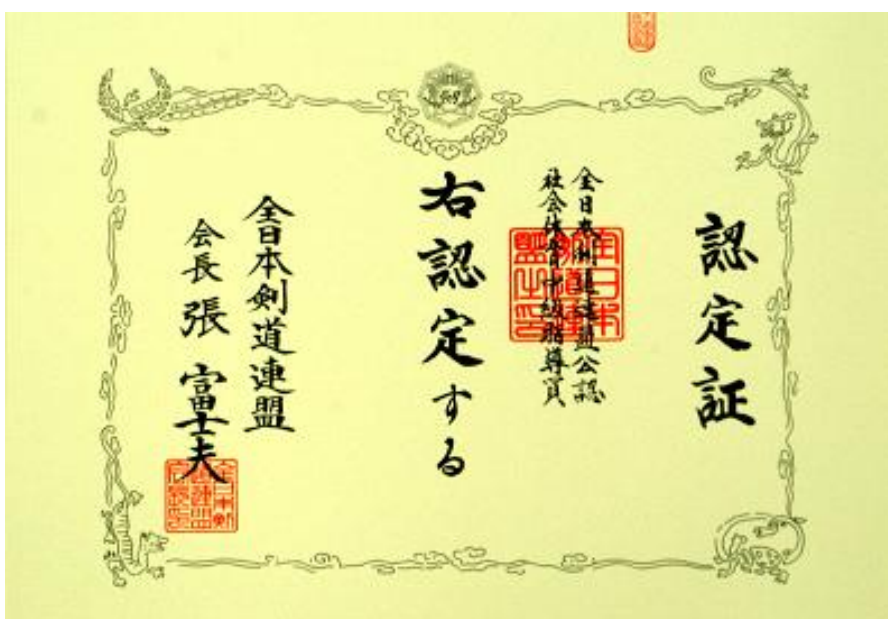 認定証
全日本剣道連盟公認
社会体育中級指導員
右認定する
全日本剣道連盟
会長 張 富士夫